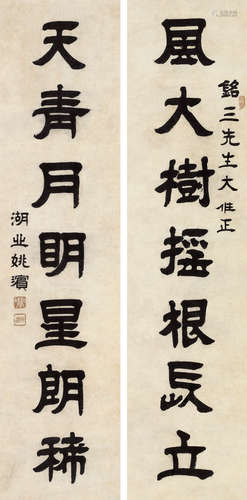 銘三先生大雅正
風大樹搖根長立
天青月明星朗稀
湖北姚濱